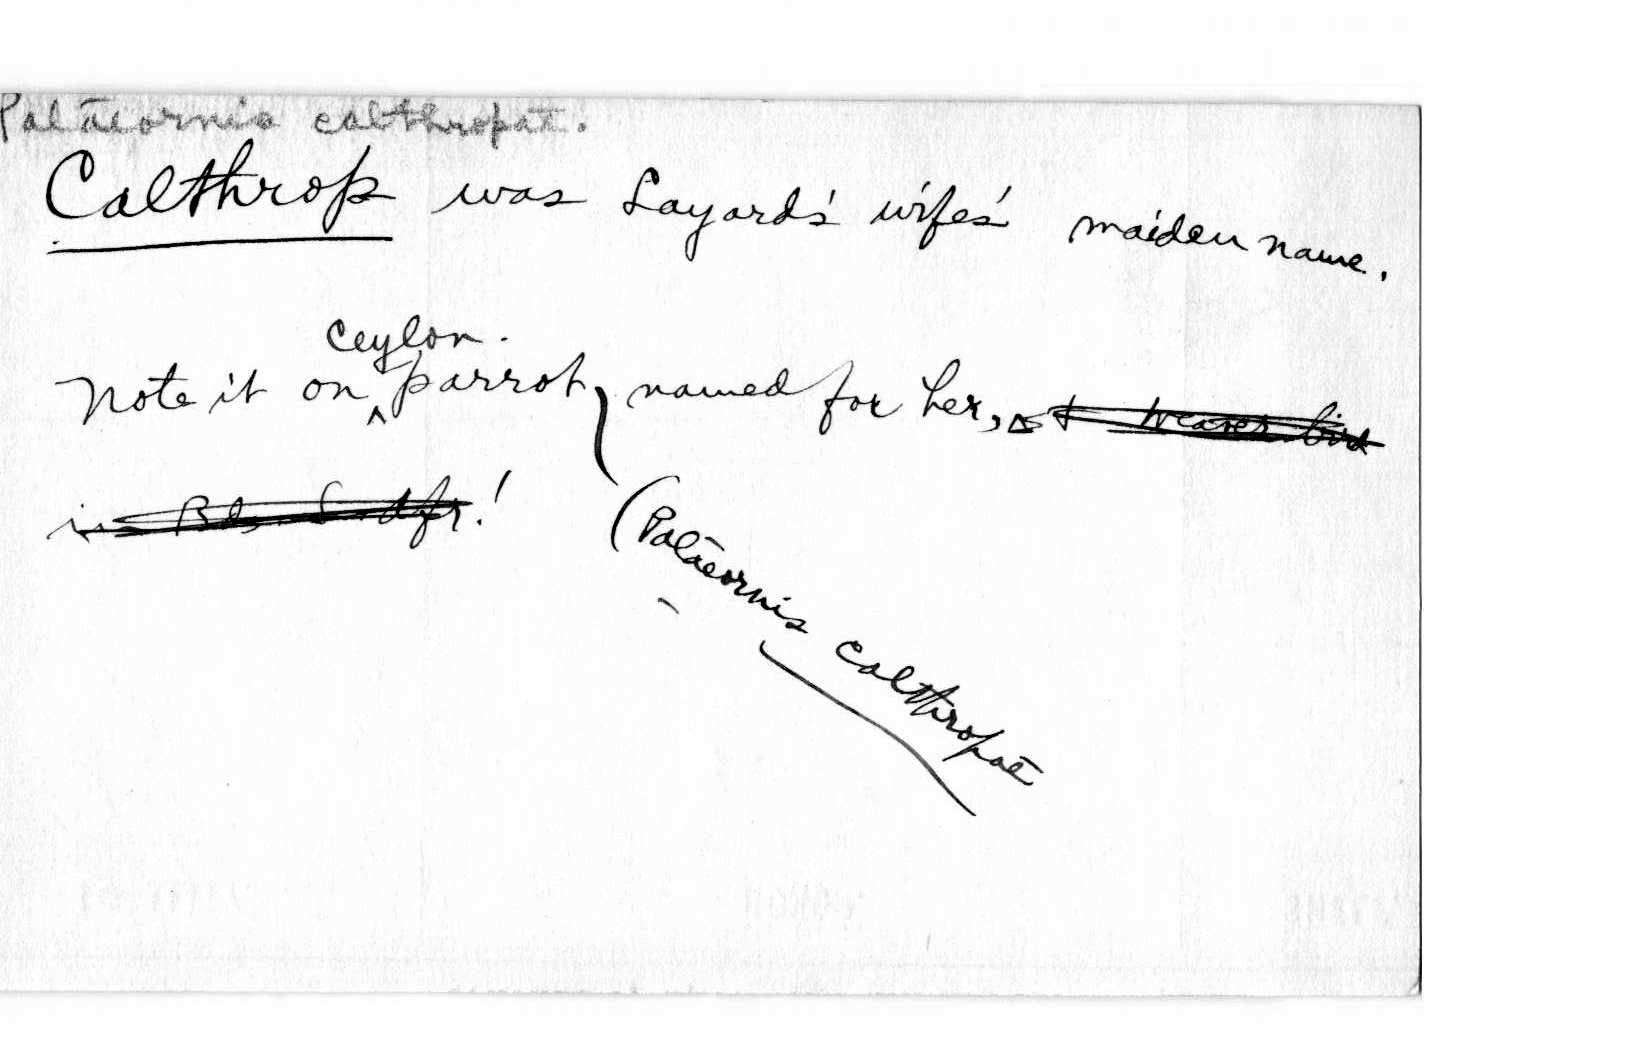 Palaeornis calthropae.
Calthrop was Layard's wife's maiden name.
Note it on ^ Ceylon. parrot, named for her, & weaver bird
in Bds
(Palaeornis calthropae